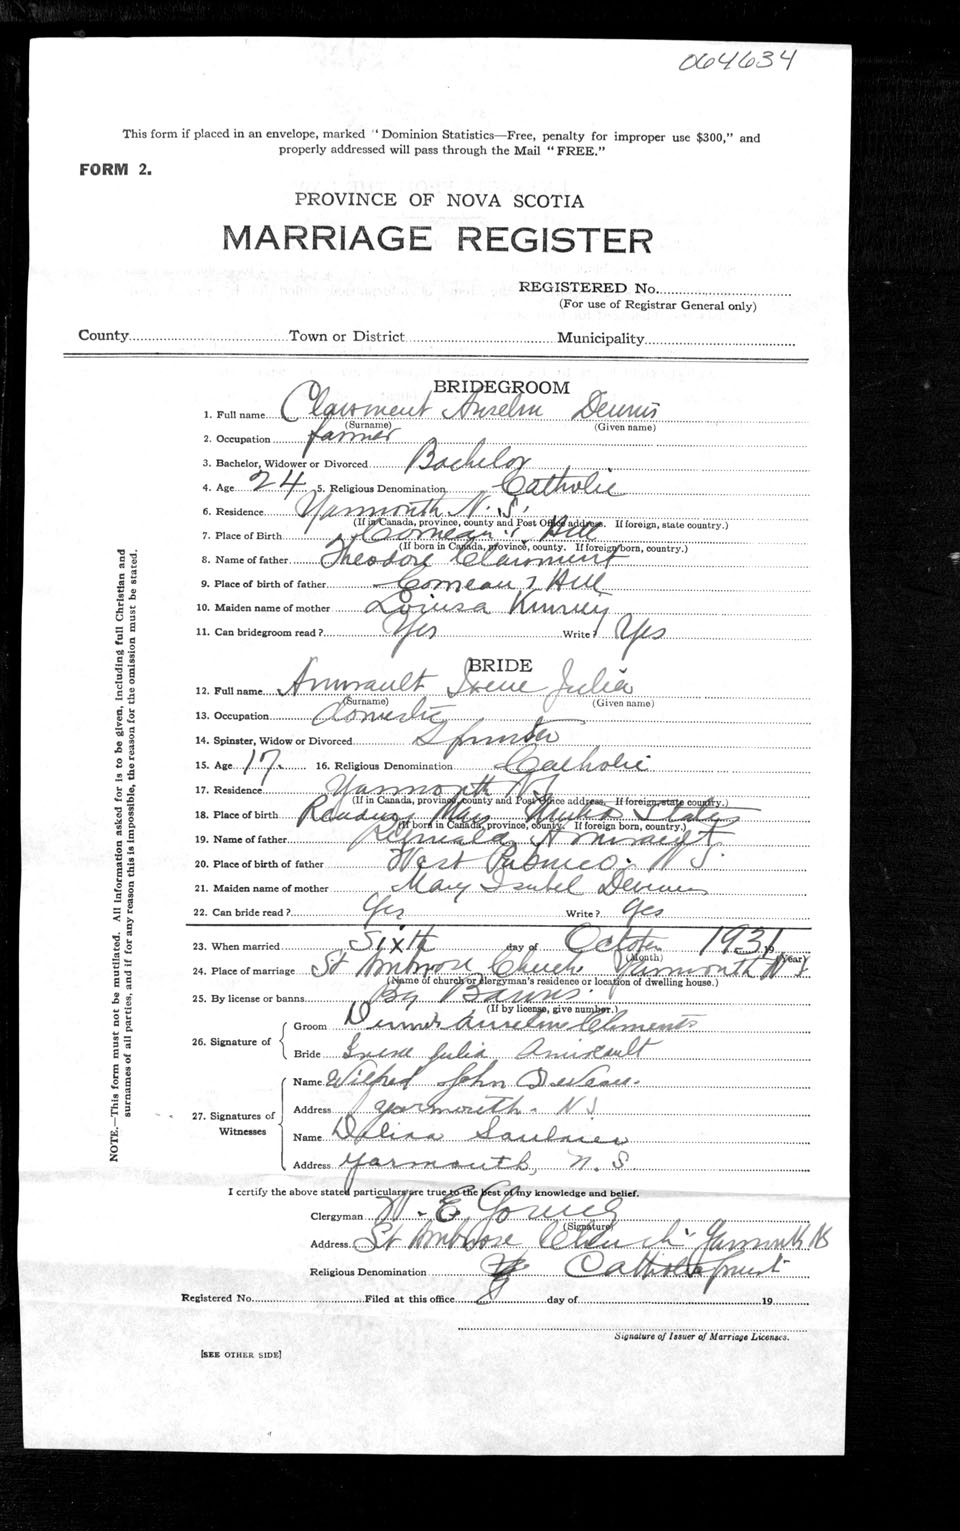 064634
This form if placed in an envelope, marked "Dominion Statistics—Free, penalty for improper use $300," and
properly addressed will pass through the Mail "FREE."
FORM 2.
PROVINCE OF NOVA SCOTIA
MARRIAGE REGISTER
REGISTERED No.
(For use of Registrar General only)
County Town or District Municipality
BRIDEGROOM
1. Full name Clairmont Anselm Dennis
(Surname) (Given name)
2. Occupation farmer
3. Bachelor, Widower or Divorced Bachelor
4. Age 24 5. Religious Denomination Catholic
6. Residence Yarmouth N.S.
(If in Canada, province, county and Post Office address. If foreign, state country.)
7. Place of Birth Comeau's Hill
(If born in Canada, province, county. If foreign born, country.)
8. Name of father Theodore Clairmont
9. Place of birth of father Comeau's Hill
10. Maiden name of mother Louisa Kinney
11. Can bridegroom read? Yes Write? Yes
BRIDE
12. Full name Amirault Irene Julia
(Surname) (Given name)
13. Occupation domestic
14. Spinster, Widow or Divorced Spinster
15. Age 17 16. Religious Denomination Catholic
17. Residence Yarmouth N.S.
(If in Canada, province, county and Post Office address. If foreign, state country.)
18. Place of birth Reading Mass United States
(If born in Canada, province, county. If foreign born, country.)
19. Name of father Reginald
20. Place of birth of father West Pubnico N.S.
21. Maiden name of mother Mary Isabel
22. Can bride read? Yes Write? Yes
23. When married Sixth day of October 1931 19
(Month) (Year)
24. Place of marriage St Ambrose Church Yarmouth N S
(Name of church or clergyman's residence or location of dwelling house.)
25. By license or banns By Banns
(If by license, give number.)
26. Signature of
Groom Dennis Anselme Clements
Bride Irene Julia Amirault
27. Signatures of
Witnesses
Name Wilfred John DeVeau
Address Yarmouth N.S
Name Saulnier
Address Yarmouth, N.S.
I certify the above stated particulars are true to the best of my knowledge and belief.
Clergyman W. E. Young
(Signature)
Address St Ambrose Church Yarmouth NS
Religious Denomination Catholic priest
Registered No. Filed at this office day of 19
Signature of Issuer of Marriage Licenses.
[SEE OTHER SIDE]
NOTE.—This form must not be mutilated. All Information asked for is to be given, including full Christian and
surnames of all parties, and if for any reason this is impossible, the reason for the omission must be stated.